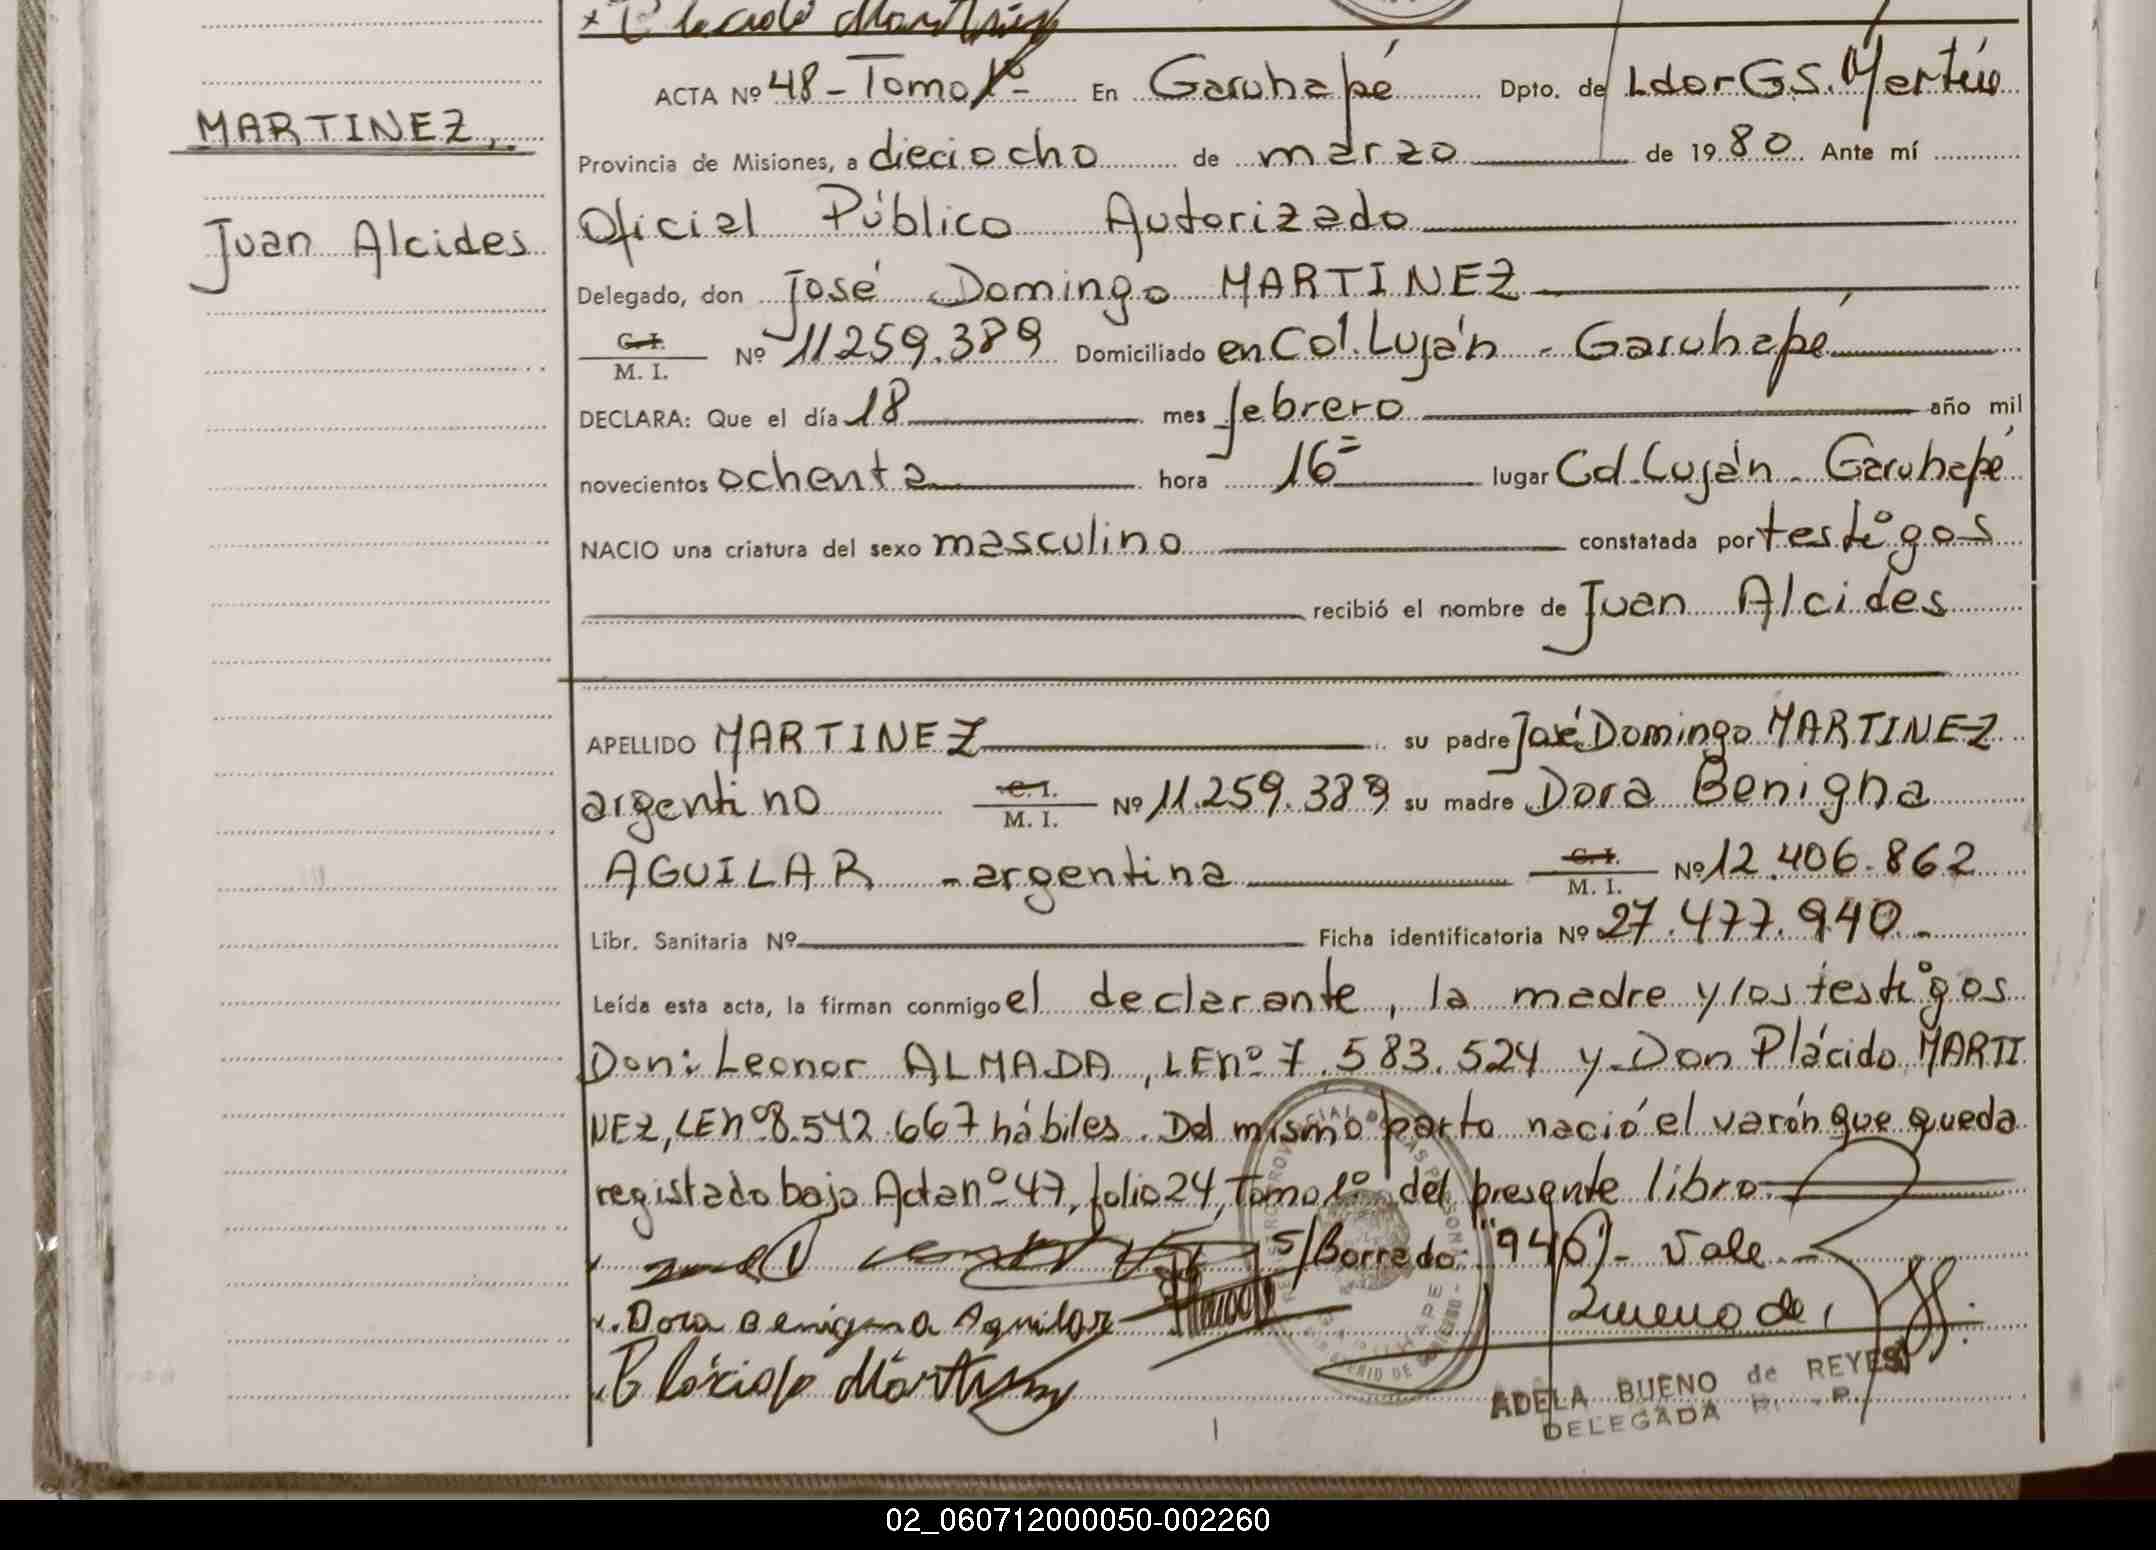 x Plácido Martínez
ACTA Nº 48 - Tomo 1º - En Garuhapé Dpto. de Ldor G.S. Martín
MARTINEZ,
Provincia de Misiones, a dieciocho de marzo de 1980. Ante mí
Juan Alcides
Oficial Público Autorizado
Delegado, don José Domingo MARTINEZ
C. I.
M. I. Nº 11259.389 Domiciliado en Col. Luján - Garuhapé
DECLARA: Que el día 18 mes febrero año mil
novecientos ochenta hora 16= lugar Col. Luján - Garuhapé
NACIO una criatura del sexo masculino constatada por testigos
recibió el nombre de Juan Alcides
APELLIDO MARTINEZ su padre José Domingo MARTINEZ
argentino C. I. M. I. Nº 11.259.389 su madre Dora Benigna
AGUILAR - argentina C. I. M. I. Nº 12.406.862
Libr. Sanitaria Nº Ficha identificatoria Nº 27.477.940.-
Leída esta acta, la firman conmigo el declarante, la madre y los testigos
Don: Leonor ALMADA, LE nº 7.583.524 y Don Plácido MARTI
NEZ, LE nº 8.542.667 hábiles. Del mismo parto nació el varón que queda
registado bajo Acta nº 47, folio 24, Tomo 1º del presente libro
S/Borrado: "940" - Vale -
x. Dora Benigna Aguilar
Bueno de
x. Plácido Martínez
ADELA BUENO de REYES
DELEGADA R. P.
02_060712000050-002260